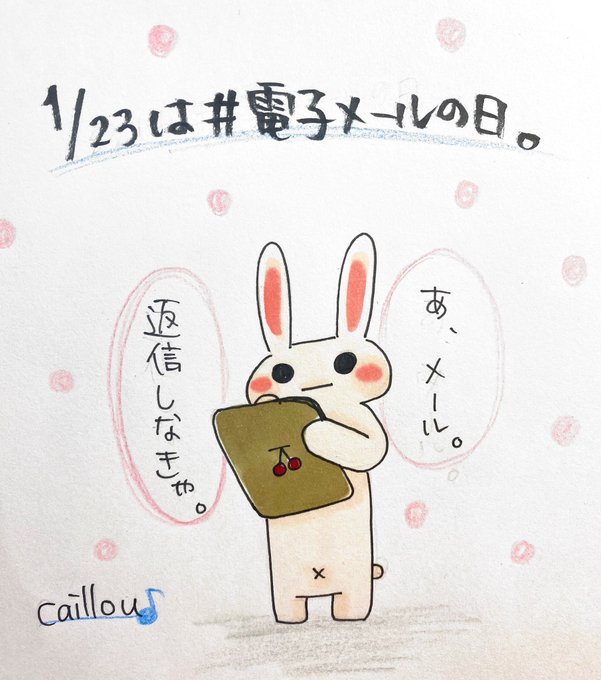 1/23は#電子メールの日。
あ、メール。
返信しなきゃ。
caillou♪